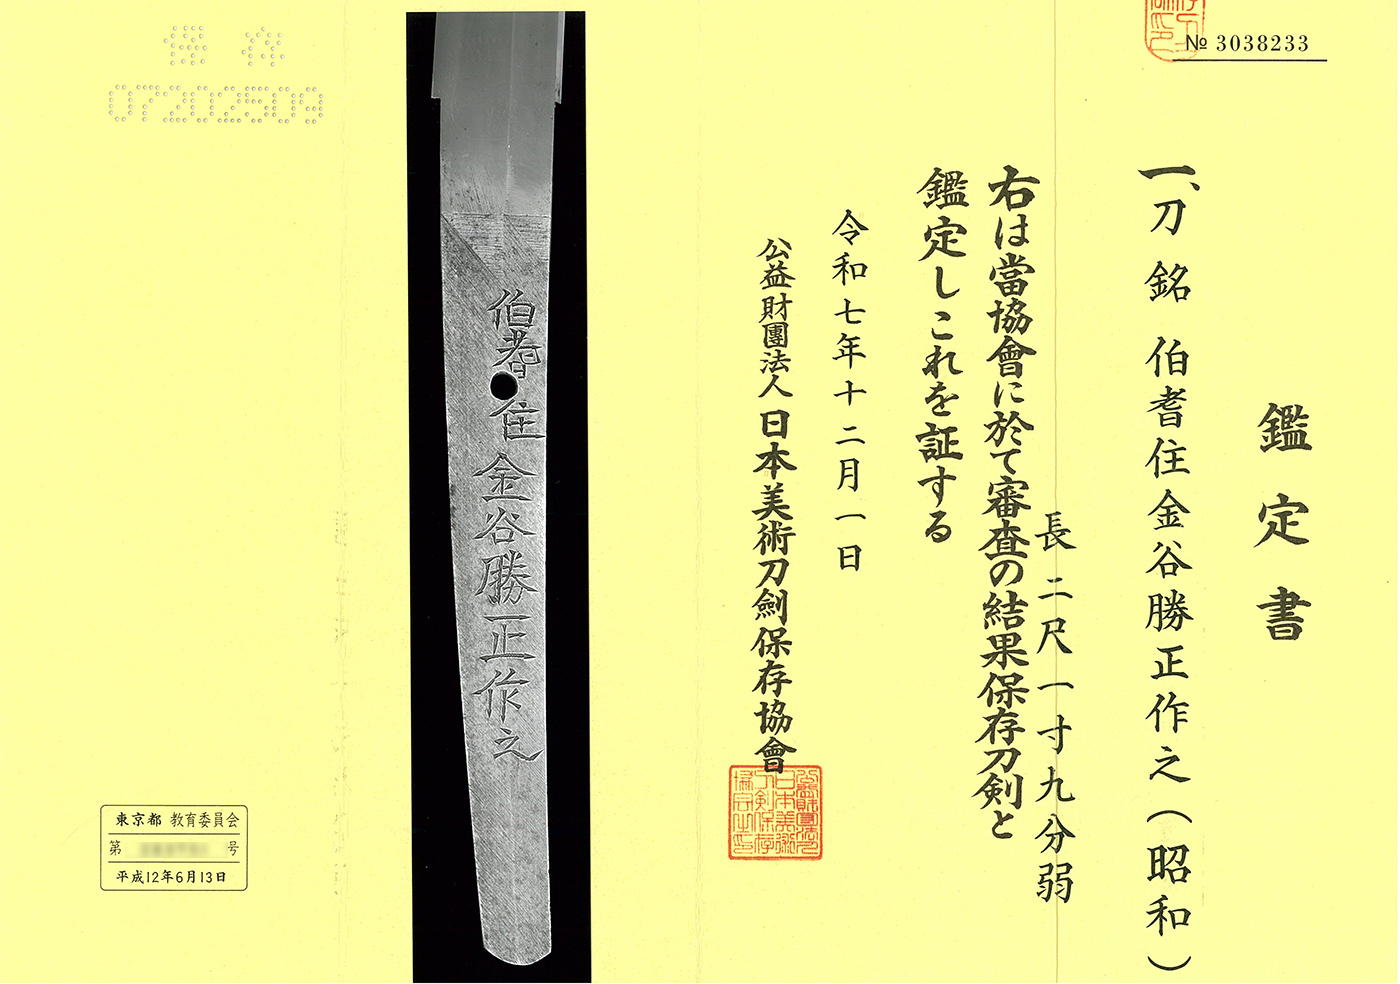 № 3038233
鑑定書
一、刀 銘 伯耆住金谷勝正作之(昭和)
長二尺一寸九分弱
右は當協會に於て審査の結果保存刀剣と
鑑定しこれを証する
令和七年十二月一日
公益財團法人日本美術刀劍保存協會
伯耆住金谷勝正作之
保存
07202509
東京都 教育委員会
第 号
平成12年6月13日